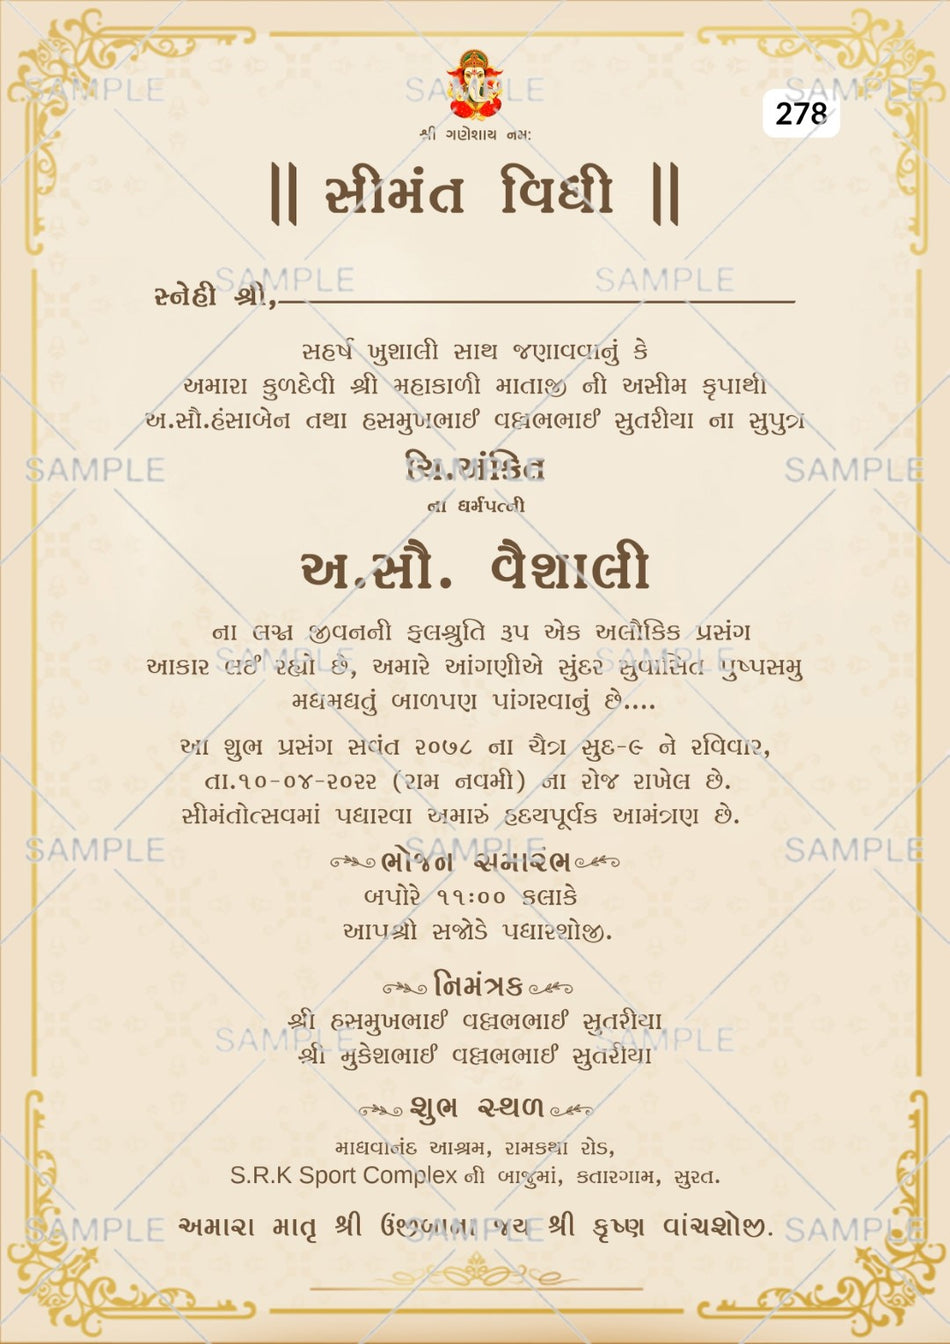 શ્રી ગણેશાય નમ:
278
|| સીમંત વિધી ||
સ્નેહી શ્રી,
સહર્ષ ખુશાલી સાથ જણાવવાનું કે
અમારા કુળદેવી શ્રી મહાકાળી માતાજી ની અસીમ કૃપાથી
અ.સૌ.હંસાબેન તથા હસમુખભાઈ વલ્લભભાઈ સુતરીયા ના સુપુત્ર
ચિ.અંકિત
ના ધર્મપત્ની
અ.સૌ. વૈશાલી
ના લગ્ન જીવનની ફલશ્રુતિ રૂપ એક અલૌકિક પ્રસંગ
આકાર લઈ રહ્યો છે, અમારે આંગણીએ સુંદર સુવાસિત પુષ્પસમુ
મઘમઘતું બાળપણ પાંગરવાનું છે....
આ શુભ પ્રસંગ સવંત ૨૦૭૮ ના ચૈત્ર સુદ-૯ ને રવિવાર,
તા.૧૦-૦૪-૨૦૨૨ (રામ નવમી) ના રોજ રાખેલ છે.
સીમંતોત્સવમાં પધારવા અમારું હૃદયપૂર્વક આમંત્રણ છે.
ભોજન સમારંભ
બપોરે ૧૧:૦૦ કલાકે
આપશ્રી સજોડે પધારશોજી.
નિમંત્રક
શ્રી હસમુખભાઈ વલ્લભભાઈ સુતરીયા
શ્રી મુકેશભાઈ વલ્લભભાઈ સુતરીયા
શુભ સ્થળ
માધવાનંદ આશ્રમ, રામકથા રોડ,
S.R.K Sport Complex ની બાજુમાં, કતારગામ, સુરત.
અમારા માતૃ શ્રી ઉંજીબાના જય શ્રી કૃષ્ણ વાંચશોજી.